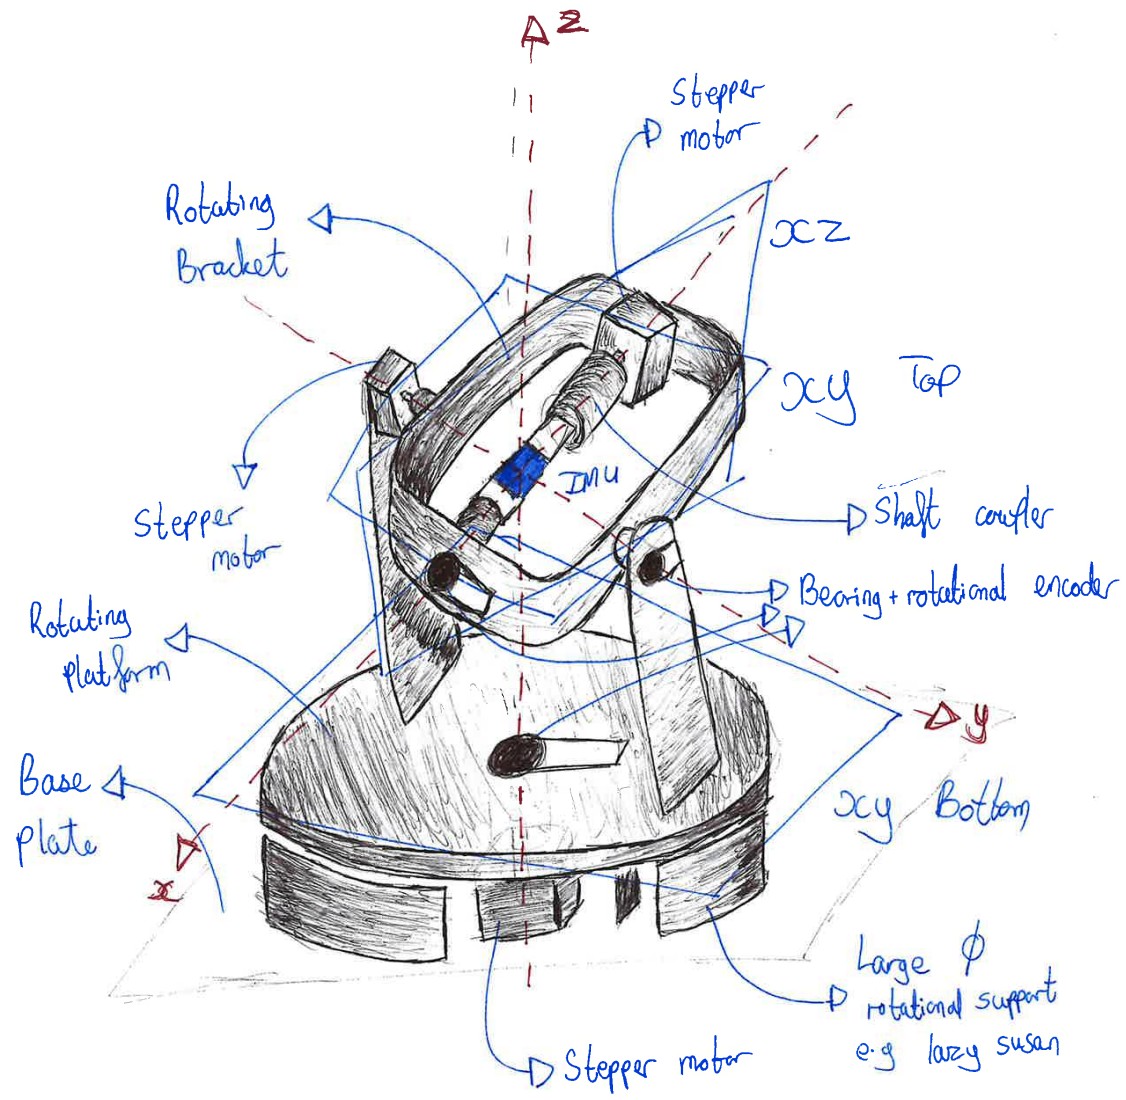 z
Stepper
motor
Rotating
Bracket
xz
xy Top
IMU
Shaft coupler
Stepper
motor
Bearing + rotational encoder
Rotating
platform
y
Base
plate
xy Bottom
x
Large ϕ
rotational support
e.g lazy susan
Stepper motor